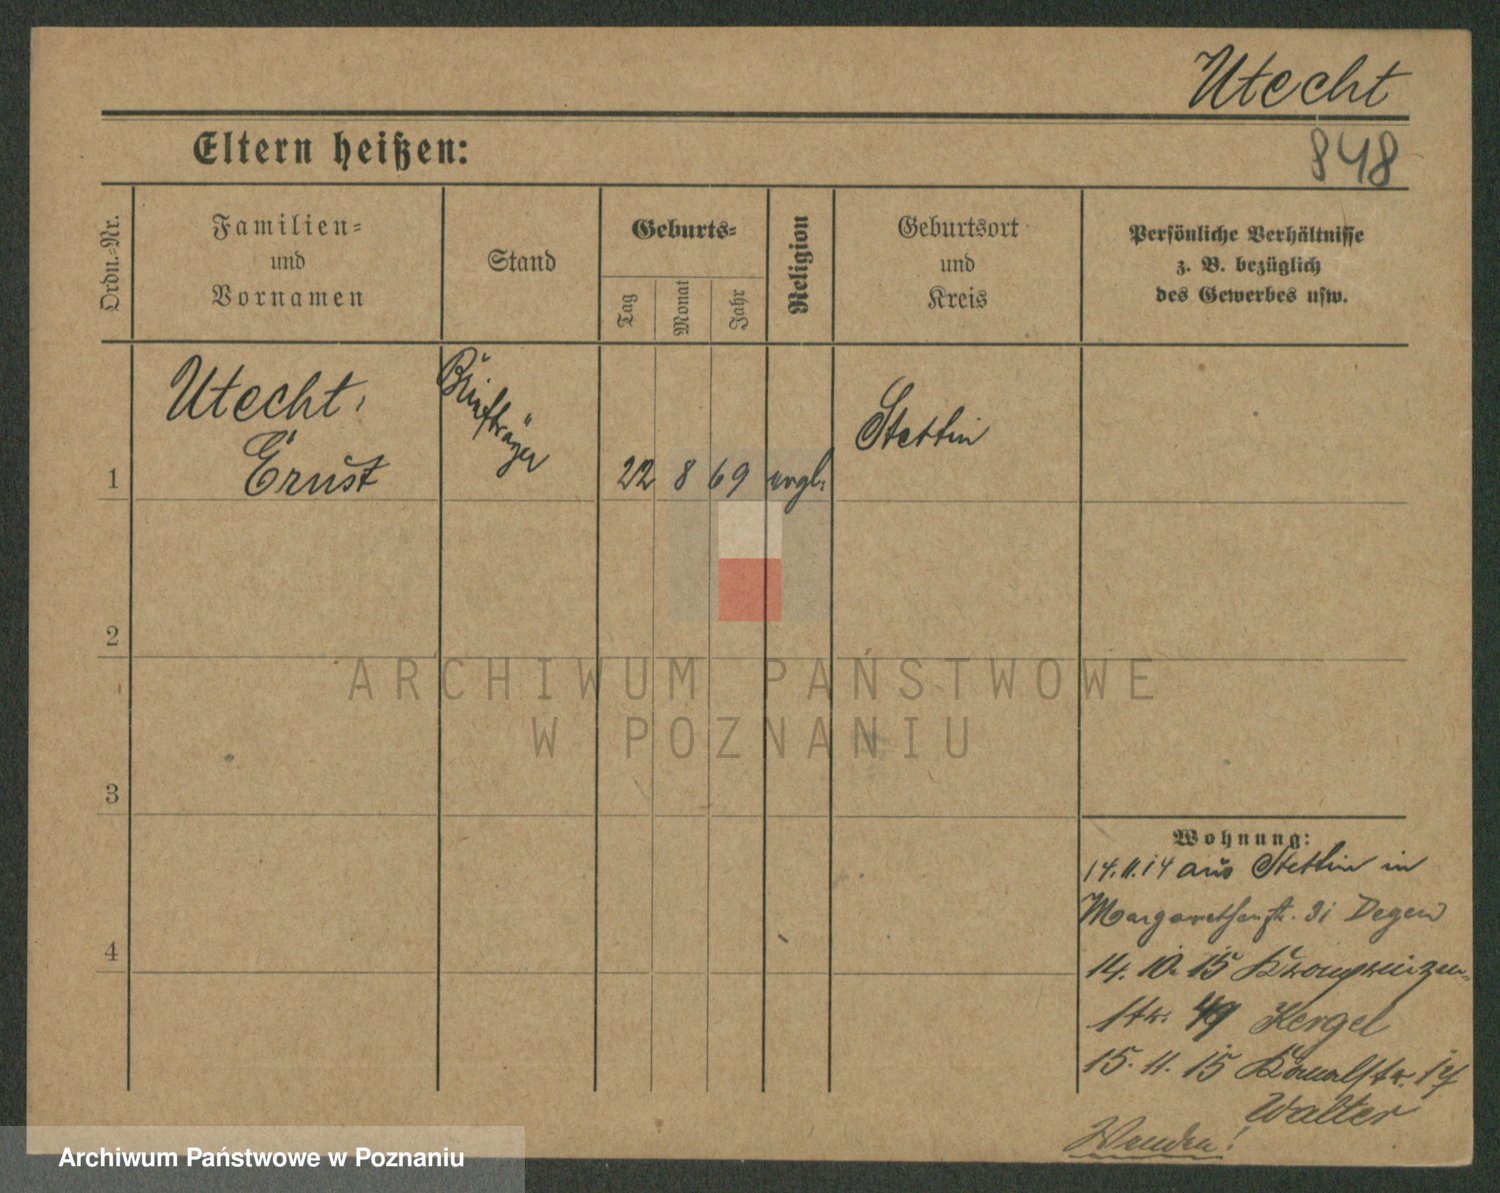 Utecht
Eltern heißen:
848
Ordn.-Nr.
Familien-
und
Vornamen
Stand
Geburts-
Tag
Monat
Jahr
Religion
Geburtsort
und
Kreis
Persönliche Verhältnisse
z. B. bezüglich
des Gewerbes usw.
1
Utecht,
Ernst
Briefträger
22 8 69 evgl.
Stettin
2
3
4
ARCHIWUM PAŃSTWOWE
W POZNANIU
Wohnung:
14.11.14 aus Stettin in
Margarethenstr. 31 Degen
14. 10. 15 Kronprinzen-
str. 49 Kergel
15. 11. 15 Kanalstr. 17
Walter
Wenden!
Archiwum Państwowe w Poznaniu